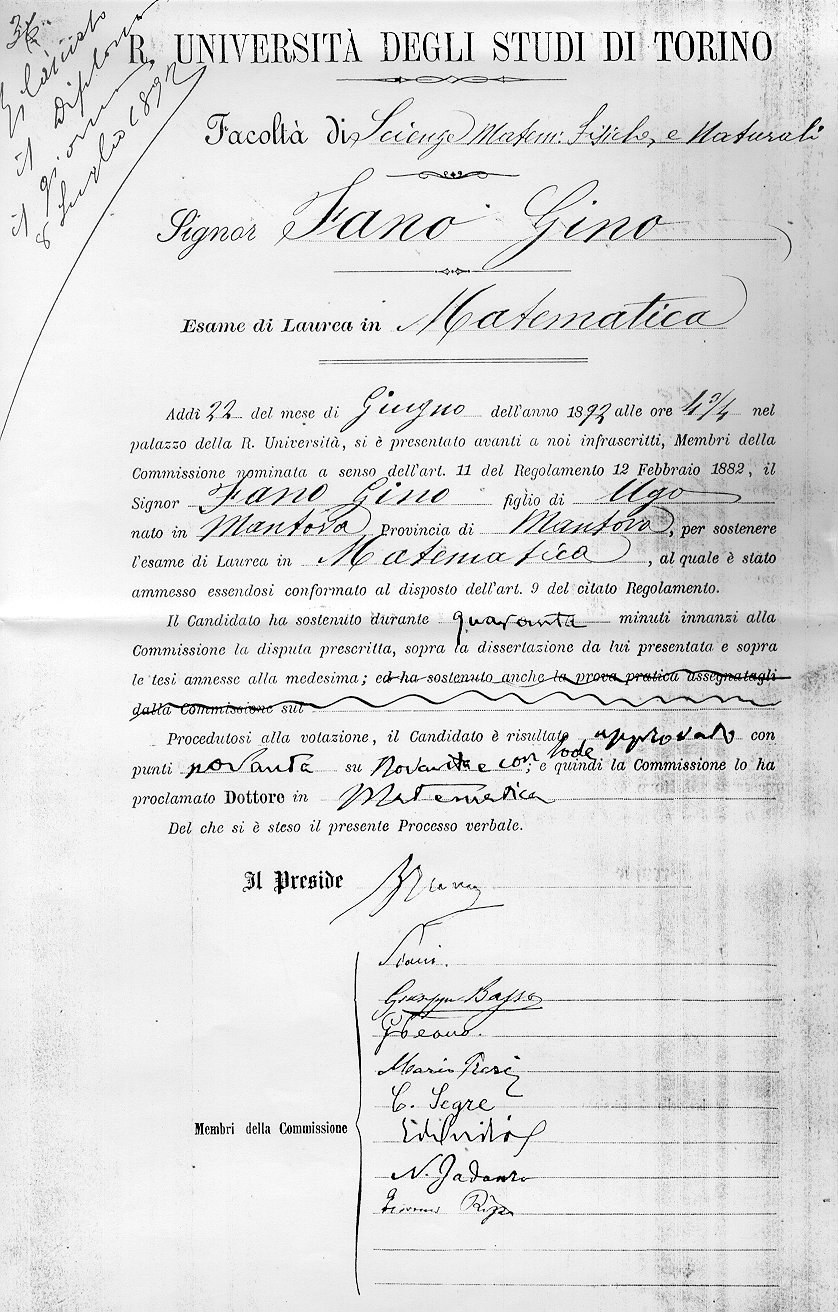 36
Rilasciato
il Diploma
il giorno
8 Luglio 1892
R. UNIVERSITÀ DEGLI STUDI DI TORINO
Facoltà di Scienze Matem: Fisiche, e Naturali
Signor Fano Gino
Esame di Laurea in Matematica
Addì 22 del mese di Giugno dell'anno 1892 alle ore 4 3/4 nel
palazzo della R. Università, si è presentato avanti a noi infrascritti, Membri della
Commissione nominata a senso dell'art. 11 del Regolamento 12 Febbraio 1882, il
Signor Fano Gino figlio di Ugo
nato in Mantova Provincia di Mantova, per sostenere
l'esame di Laurea in Matematica, al quale è stato
ammesso essendosi conformato al disposto dell'art. 9 del citato Regolamento.
Il Candidato ha sostenuto durante quaranta minuti innanzi alla
Commissione la disputa prescritta, sopra la dissertazione da lui presentata e sopra
le tesi annesse alla medesima; ed ha sostenuto anche la prova pratica assegnatagli
dalla Commissione sul
Procedutosi alla votazione, il Candidato è risultato approvato con
punti novanta su novanta e con lode; e quindi la Commissione lo ha
proclamato Dottore in Matematica
Del che si è steso il presente Processo verbale.
Il Preside
Membri della Commissione
Siacci.
Giuseppe Basso
G Peano.
Mario Pieri
C. Segre
N. Jadanza
Giovanni Rizzo